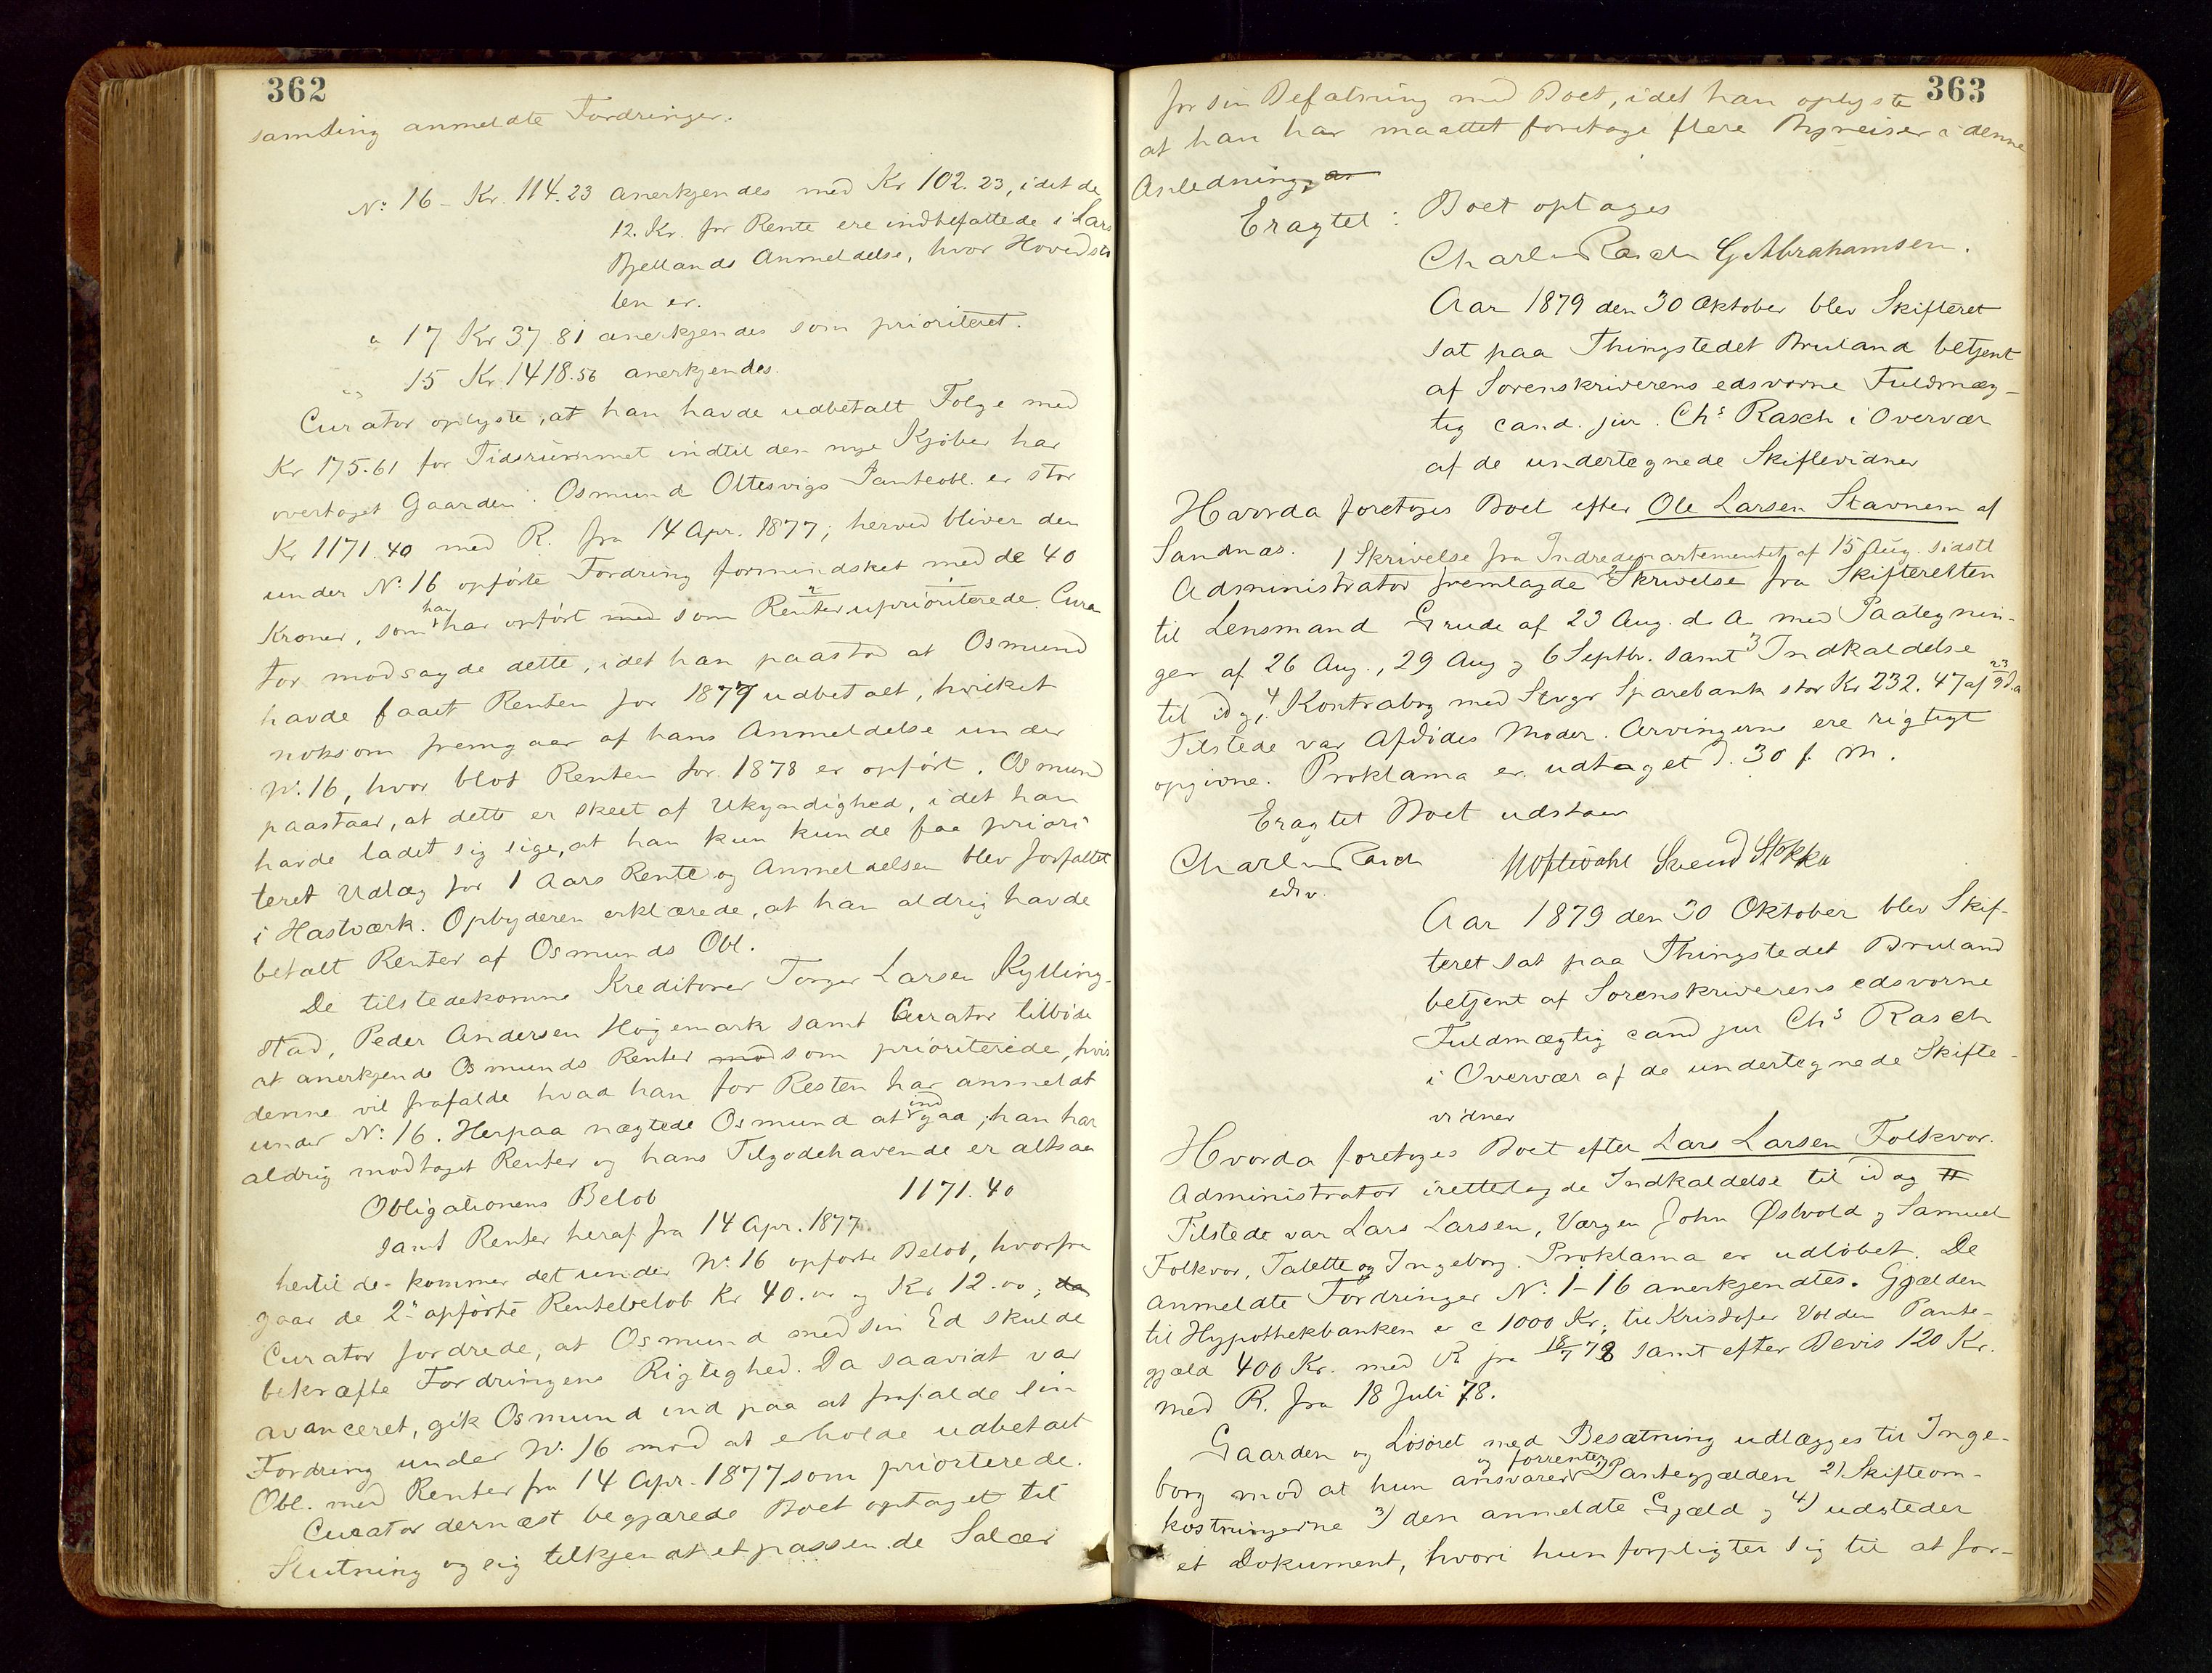 362
samling anmeldte Fordringer.
No 16 - Kr. 114.23 anerkjendes med Kr 102.23, idet de
12. Kr. for Rente ere indbefattede i Lars
Bjellands Anmeldelse, hvor Hovedsto
len er.
" 17 Kr 37 81 anerkjendes som prioriteret.
" " 15 Kr. 1418.56 anerkjendes.
Curator oplyste, at han havde udbetalt Folge med
Kr 175.61 for Tidsrummet indtil den nye Kjöber har
overtaget Gaarden. Osmund Ottesvigs Panteobl. er stor
Kr 1171.40 med R. fra 14 Apr. 1877; herved bliver den
under No 16 opførte Fordring formindsket med de 40
Kroner, som han har opført med som Renter uprioriterede. Cura
tor modsagde dette, idet han paastod at Osmund
havde faaet Renten for 1877 udbetalt, hvilket
noksom fremgaar af hans Anmeldelse under
No. 16, hvor blot Renten for 1878 er opført. Osmund
paastaar, at dette er skeet af Ukyndighed, idet han
havde ladet sig sige, at han kun kunde faa priori
teret Udlæg for 1 Aars Rente og Anmeldelsen blev forfattet
i Hastværk. Opbyderen erklærede, at han aldrig havde
betalt Renter af Osmunds Obl.
De tilstedekomne Kreditorer Torger Larsen Kylling-
stad, Peder Andersen Høgemark samt Curator tilböd
at anerkjende Osmunds Renter mod som prioriterede, hvis
denne vil frafalde hvad han for Resten har anmeldt
under No 16. Herpaa nægtede Osmund at indgaa; han har
aldrig modtaget Renter og hans Tilgodehavende er altsaa
Obligationens Belöb 1171.40
samt Renter heraf fra 14 Apr. 1877
hertil de - kommer det under No 16 opførte Beløb, hvorfra
gaar de 2de opførte Rentebelöb Kr 40.00 og Kr 12.00; da
Curator fordrede, at Osmund med sin Ed skulde
bekræfte Fordringens Rigtighed. Da saavidt var
avanceret, gik Osmund ind paa at frafalde sin
Fordring under No. 16 mod at erholde udbetalt
Obl. med Renter fra 14 Apr. 1877 som priorterede.
Curator dernæst begjærede Boet optaget til
Slutning og sig tilkjendt et passende Salær
363
for sin Befatning med Boet, idet han oplyste
at han har maattet foretage flere Byreiser i denne
Anledning, ar
Eragtet: Boet optages
Charles Rasch G Abrahamsen.
Aar 1879 den 30 Oktober blev Skifteret
sat paa Thingstedet Bruland betjent
af Sorenskriverens edsvorne Fuldmæg-
tig cand. jur. Chs Rasch i Overvær
af de undertegnede Skiftevidner
Hvorda foretoges Boet efter Ole Larsen Stavnem af
Sandnæs. 1 Skrivelse fra Indredepartementet af 15 Aug. sidstl
Administrator fremlagde 2 Skrivelse fra Skifteretten
til Lensmand Grude af 23 Aug. d. A. med Paategnin-
ger af 26 Aug., 29 Aug og 6 Septbr. samt 3 Indkaldelse
til idag, 4 Kontrabog med Stvgr Sparebank stor Kr 232.47 af 23/9 d.a
Tilstede var Afdödes Moder. Arvingerne ere rigtigt
opgivne. Proklama er udtaget d. 30 f. M.
Eragtet Boet udstaar
Charles Rasch Svend Stokka
edsv.
Aar 1879 den 30 Oktober blev Skif-
teret sat paa Thingstedet Bruland
betjent af Sorenskriverens edsvorne
Fuldmægtig cand jur Chs Rasch
i Overvær af de undertegnede Skifte-
vidner
Hvorda foretoges Boet efter Lars Larsen Folkvor.
Administrator irettelagde Indkaldelse til idag
Tilstede var Lars Larsen, Værgen John Østvold og Samuel
Folkvor, Talette og Ingeborg. Proklama er udlöbet. De
anmeldte Fordringer No. 1-16 anerkjendtes. Gjælden
til Hypothekbanken er c 1000 Kr; til Kristofer Volden Pante-
gjæld 400 Kr. med R fra 18/7 78 samt efter Bevis 120 Kr.
med R. fra 18 Juli 78.
Gaarden og Løsøret med Besætning udlægges til Inge-
borg mod at hun ansvarer og forrenter 1) Pantegjælden 2) Skifteom-
kostningerne 3) den anmeldte Gjæld og 4) udsteder
et Dokument, hvori hun forpligter sig til at for-